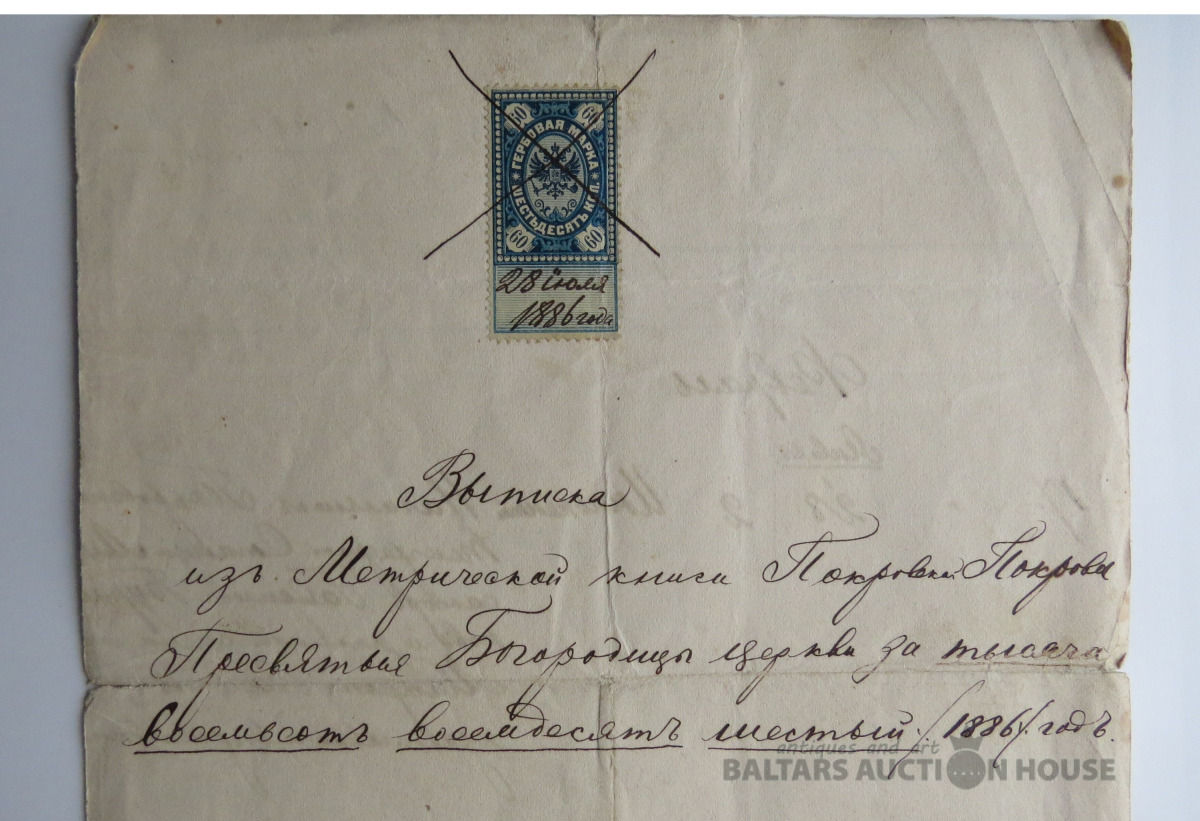 60 60
ГЕРБОВАЯ МАРКА
ШЕСТЬДЕСЯТЪ КОП.
60 60
28 Іюля
1886 года
Выписка
изъ Метрической книги Покровской Покрова
Пресвятыя Богородицы церкви за тысяча
восемьсотъ восемдесятъ шестый /1886/ годъ.
antiques and art
BALTARS AUCTION HOUSE